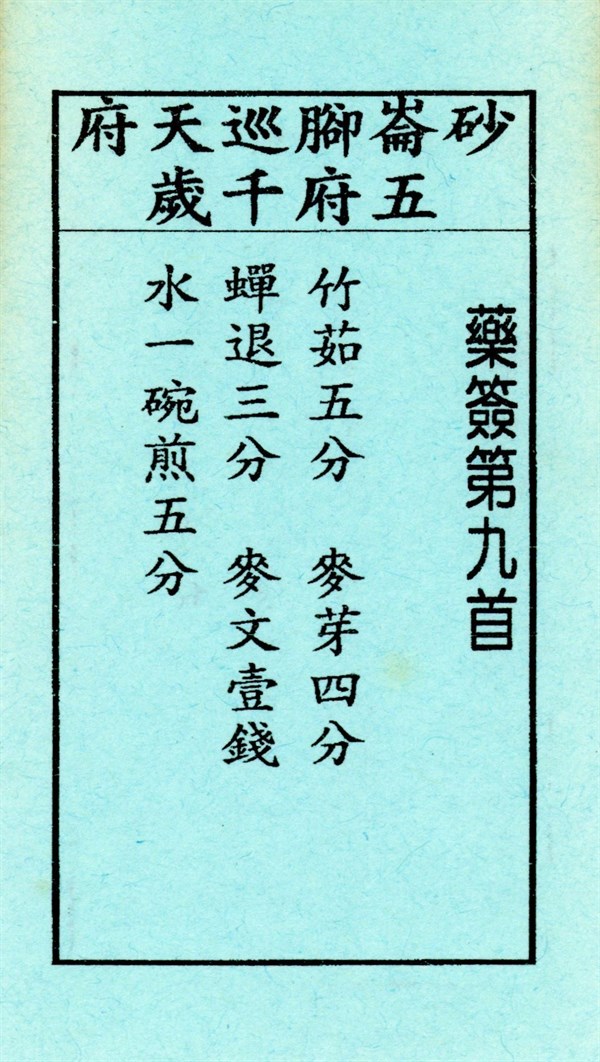 砂崙腳巡天府
五府千歲
藥簽第九首
竹茹五分　麥芽四分
蟬退三分　麥文壹錢
水一碗煎五分